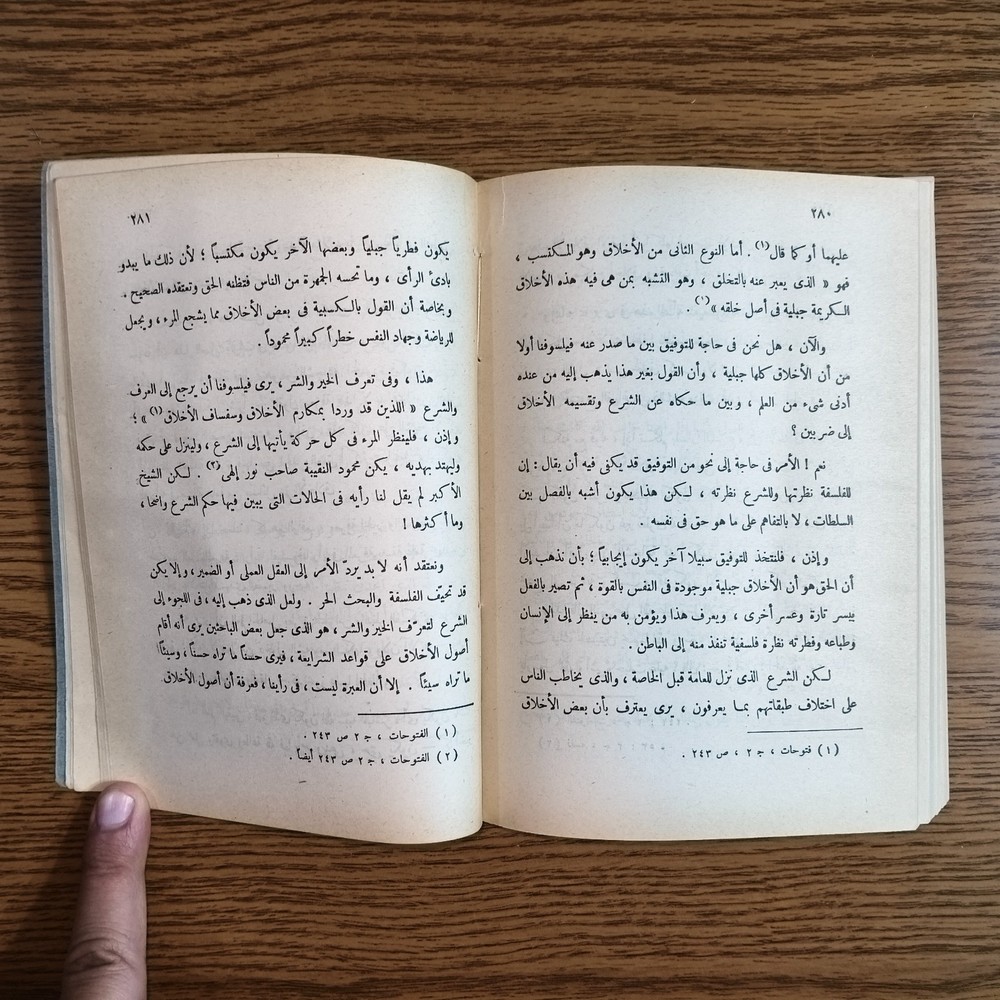 ٢٨٠
عليهما أو كما قال(١) . أما النوع الثانى من الأخلاق وهو المكتسب ،
فهو « الذى يعبر عنه بالتخلق ، وهو التشبه بمن هى فيه هذه الأخلاق
الكريمة جبلية فى أصل خلقه »(١) .
والآن ، هل نحن فى حاجة للتوفيق بين ما صدر عنه فيلسوفنا أولا
من أن الأخلاق كلها جبلية ، وأن القول بغير هذا يذهب إليه من عنده
أدنى شىء من العلم ، وبين ما حكاه عن الشرع وتقسيمه الأخلاق
إلى ضربين ؟
نعم ! الأمر فى حاجة إلى نحو من التوفيق قد يكفى فيه أن يقال : إن
للفلسفة نظرتها وللشرع نظرته ، لكن هذا يكون أشبه بالفصل بين
السلطات ، لا بالتفاهم على ما هو حق فى نفسه .
وإذن ، فلنتخذ للتوفيق سبيلا آخر يكون إيجابياً ؛ بأن نذهب إلى
أن الحق هو أن الأخلاق جبلية موجودة فى النفس بالقوة ، ثم تصير بالفعل
بيسر تارة وعسر أخرى ، ويعرف هذا ويؤمن به من ينظر إلى الإنسان
وطباعه وفطرته نظرة فلسفية تنفذ منه إلى الباطن .
لكن الشرع الذى نزل للعامة قبل الخاصة ، والذى يخاطب الناس
على اختلاف طبقاتهم بما يعرفون ، يرى يعترف بأن بعض الأخلاق
(١) فتوحات ، ج ٢ ، ص ٢٤٣ .
٢٨١
يكون فطرياً جبلياً وبعضها الآخر يكون مكتسباً ؛ لأن ذلك ما يبدو
بادئ الرأى ، وما تحسه الجمهرة من الناس فتظنه الحق وتعتقده الصحيح .
وبخاصة أن القول بالكسبية فى بعض الأخلاق مما يشجع المرء ، ويجعل
للرياضة وجهاد النفس خطراً كبيراً محموداً .
هذا ، وفى تعرف الخير والشر ، يرى فيلسوفنا أن يرجع إلى العرف
والشرع « اللذين قد وردا بمكارم الأخلاق وسفساف الأخلاق(١) » ؛
وإذن ، فلينظر المرء فى كل حركة يأتيها إلى الشرع ، ولينزل على حكمه
وليهتد بهديه ، يكن محمود النقيبة صاحب نور إلهى(٢) . لكن الشيخ
الأكبر لم يقل لنا رأيه فى الحالات التى يبين فيها حكم الشرع واضحا ،
وما أكثرها !
ونعتقد أنه لا بد يردّ الأمر إلى العقل العملى أو الضمير ، وإلا يكن
قد تحيّف الفلسفة والبحث الحر . ولعل الذى ذهب إليه ، فى اللجوء إلى
الشرع لتعرّف الخير والشر ، هو الذى جعل بعض الباحثين يرى أنه أقام
أصول الأخلاق على قواعد الشرايعة ، فيرى حسناً ما تراه حسناً ، وسيئاً
ما تراه سيئاً . إلا أن العبرة ليست ، فى رأينا ، فمعرفة أن أصول الأخلاق
(١) الفتوحات ، ج ٢ ص ٢٤٣ .
(٢) الفتوحات ، ج ٢ ص ٢٤٣ أيضاً .